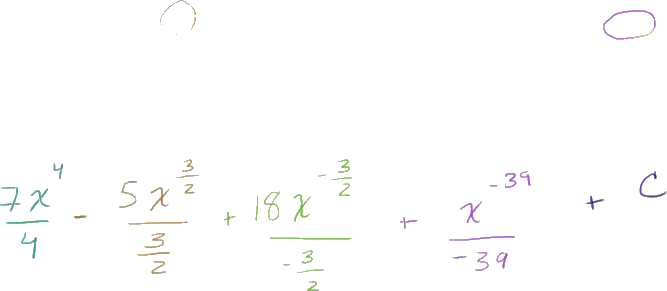 7x^4/4 - 5x^(3/2)/(3/2) + 18x^(-3/2)/(-3/2) + x^(-39)/(-39) + C